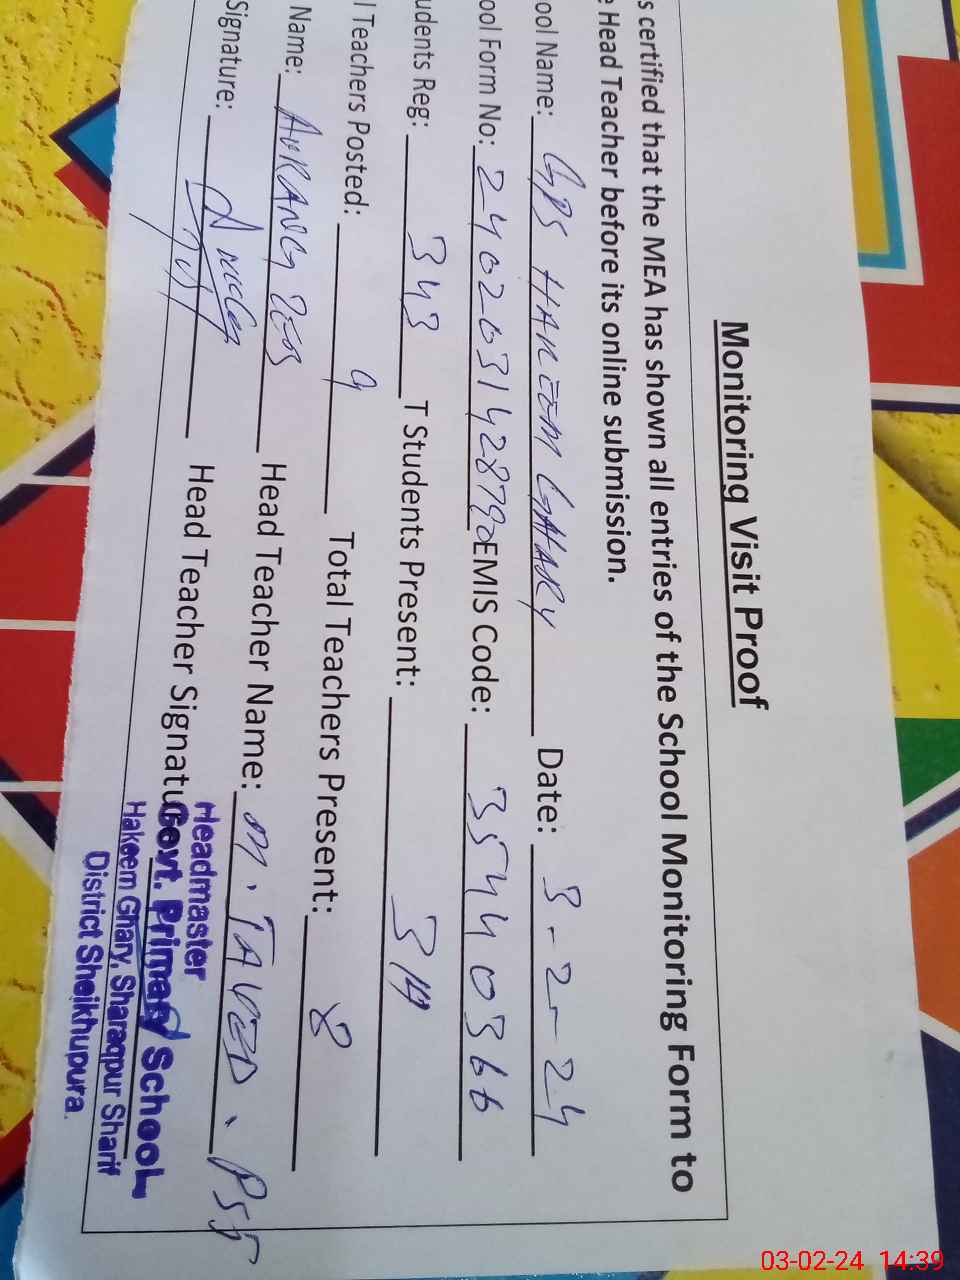 Monitoring Visit Proof
s certified that the MEA has shown all entries of the School Monitoring Form to
e Head Teacher before its online submission.
ool Name: GPS HAKEEM GHARY Date: 3-2-24
ool Form No: EMIS Code: 35440366
udents Reg: 343 T Students Present:
l Teachers Posted: 9 Total Teachers Present: 8
Name: AURANG ZEB Head Teacher Name: M. JAVED, PST
Signature: Head Teacher Signature:
Headmaster
Govt. Primary School
Hakeem Ghary, Sharaqpur Sharif
District Sheikhupura.
03-02-24 14:39